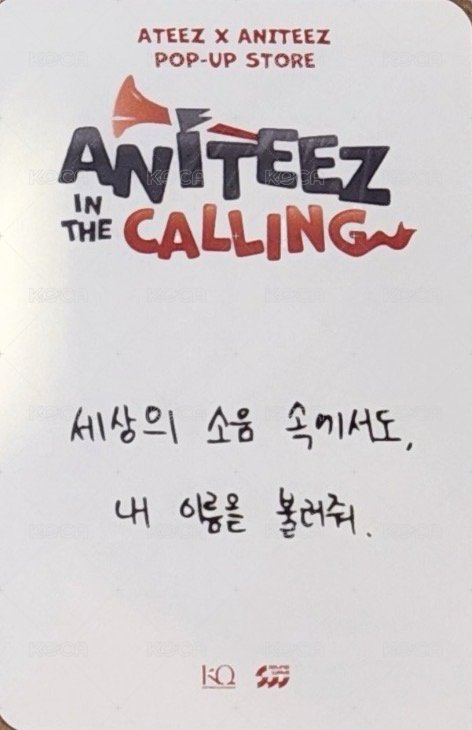 ATEEZ X ANITEEZ
POP-UP STORE
ANITEEZ
IN
THE CALLING
세상의 소음 속에서도,
내 이름을 불러줘.
KQ